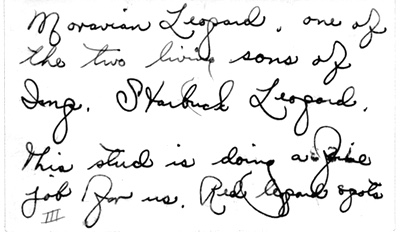 Moravian Leopard, one of
the two living sons of
Imp. Starbuck Leopard.
This stud is doing a fine
job for us. Red leopard spots
III